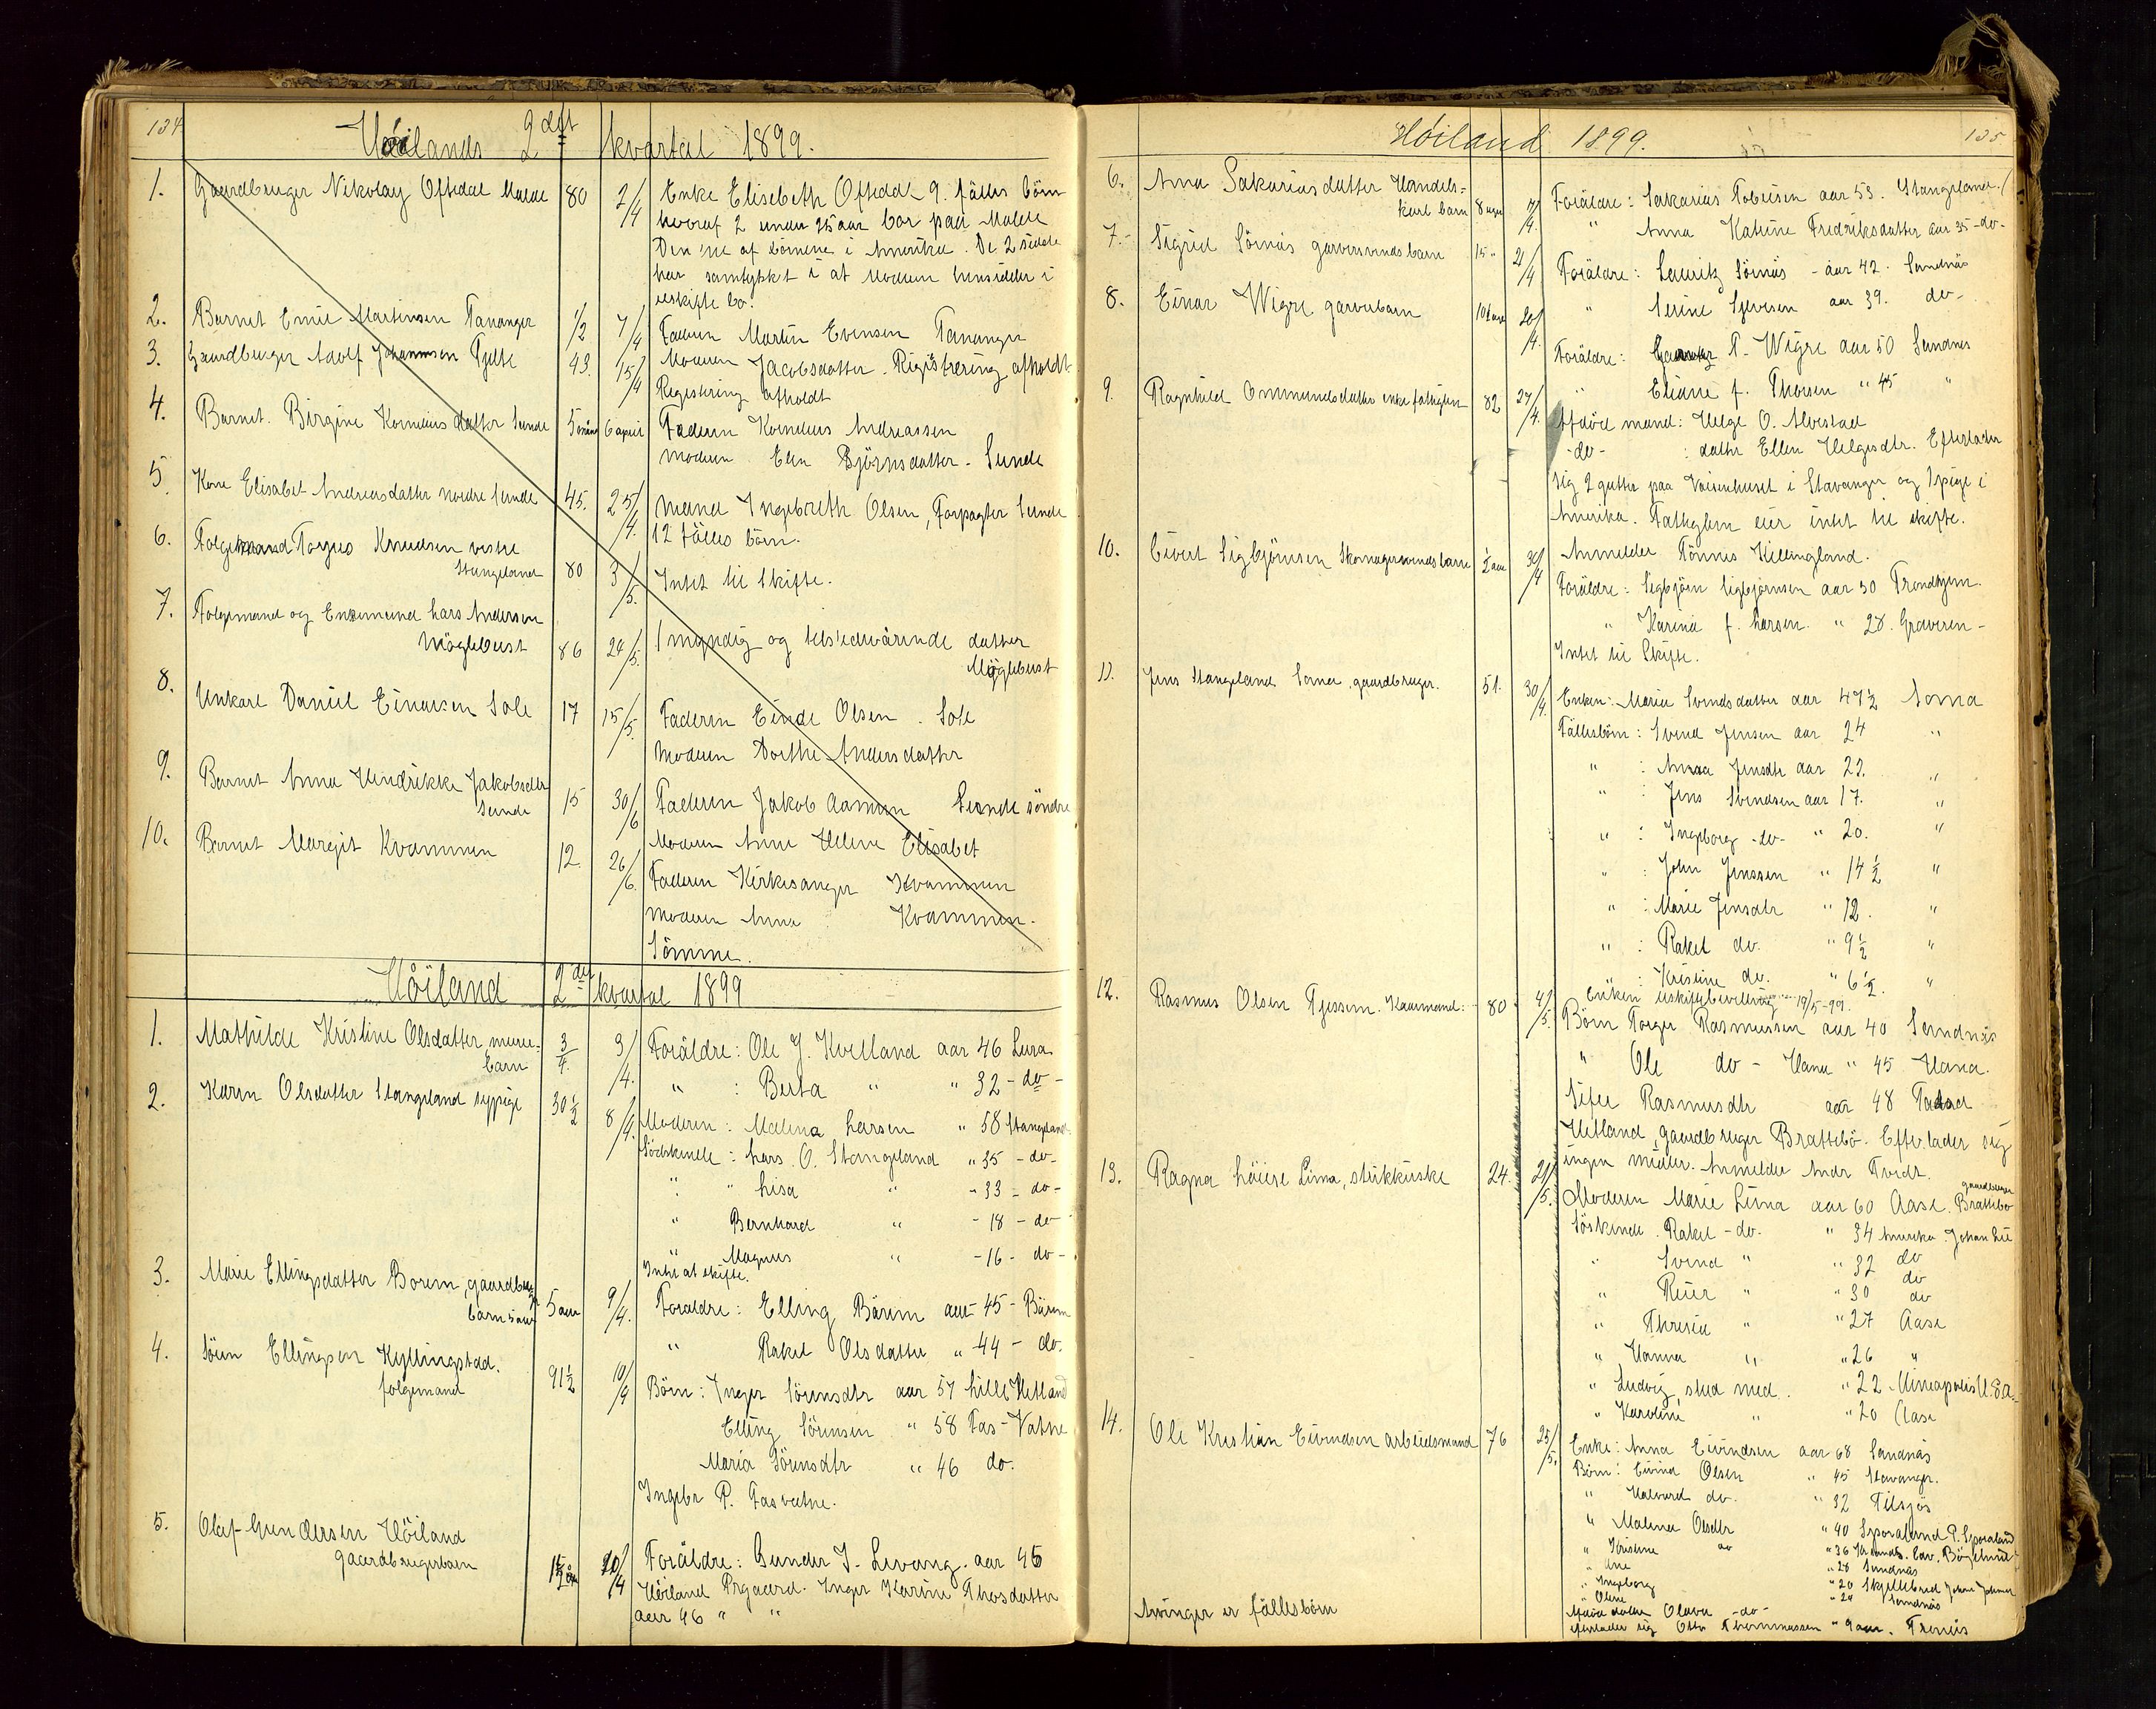 134
Höilands 2det kvartal 1899.
1. Gaardbruger Nikolay Oftedal Malde 80 2/4 Enke Elisebeth Oftedal 9. fälles börn
hvoraf 2 under 25 aar bor paa Malde
Den ene af börnene i Amerika. De 2 sidste
har samtykket i at Moderen hensidder i
uskifte bo.
2. Barnet Emil Martinsen Tananger 1/2 7/4 Faderen Martin Evensen Tananger
Moderen Jacobsdatter. Registrering afholdt
3. Gaardbruger Adolf Johannesen Tjelte 43. 15/4 Registering afholdt
4. Barnet. Birgine Kornelius datter Sunde 6 april Faderen Kornelius Andreassen
moderen Elen Björnsdatter - Sunde
5. Kone Elisabet Andreasdatter nordre Sunde 45. 25/4. Mand Ingebreth Olsen, Forpagter Sunde
12 fälles börn.
6. Folgemand Torgies Knudsen vestre
Stangeland 80 3/5. Intet til Skifte.
7. Folgemand og Enkemand Lars Andersen
Möglebust 86 24/5. 1 myndig og tilstedeværende datter
Möglebust
8. Unkarl Daniel Einarsen Sole 17 15/5. Faderen Einde Olsen. Sole
Moderen Dorthe Andersdatter
9. Barnet Anna Hendrikke Jakobsdtr
Sunde 15 30/6 Faderen Jakob Aamon Sunde söndre
Moderen Anne Helene Elisabet
10. Barnet Margit Kvammen 12. 26/6. Faderen Kirkesanger Kvammen
Moderen Anna Kvammen.
Sömme.
Höiland 2det kvartal 1899
1. Mathilde Kristine Olsdatter murer-
barn 3/4. 3/4. Foräldre: Ole J. Kvelland aar 46 Lura
" : Berta " " 32 - do -
2. Karen Olsdatter Stangeland sypige 30 1/2 8/4. Moderen: Malena Larsen " 58 Stangeland
Södskende: Lars. O. Stangeland " 35 - do -
" " Lisa " " 33 - do -
" Bernhard " - 18 - do -
" Magnus " - 16 - do -
Intet at skifte.
3. Marie Ellingsdatter Borem, gaardbrug
barn 5 aar 5 aar 9/4. Foraldre: Elling Bärem aar 45 - Bärem
" Rakel Olsdatter " 44 - do.
4. Sören Ellingsen Kyllingstad.
folgemand 91 1/2 10/4 Börn: Inger Sörensdtr aar 57 Lille Hetland
Elling Sörensen " 58 Fas-Vatne
Maria Sörensdtr " 46 do.
Ingebr P. Fasvatne.
5. Olaf Gundersen Höiland
gaardbrugerbarn 20/4 Foräldre: Gunder J. Levang. aar 46
Höiland Prgaard. Inger Karine Thosdatter
aar 46 " "
Höiland 1899. 135
6. Anna Sakariasdatter Handels-
karl barn 8 uger 17/4. Foräldre: Sakarias Tobeisen aar 53. Stangeland.
" Anna Katrine Fredriksdatter aar 35 - do -
7. Sigrid Sörnäs garversvendsbarn 15 " 21/4 Foräldre: Lauritz Sörnäs - aar 42. Sandnäs
" Serine Sylvesen aar 39. do -
8. Einar Wigre garverbarn 20/4. Foräldre: T. Wigre aar 50 Sandnes
" Eliane f. Thorsen " 45 "
9. Ragnhild Ommundsdatter enke fattiglem 82 27/4. Afdöd mand: Helge O. Alvestad
- do - : datter Ellen Helgesdtr. Efterlader
sig 2 gutter paa Vaisenhuset i Stavanger og 1 pige i
Amerika. Fattiglem eier intet til skifte.
Anmelder Tönnes Killingland.
10. Eivert Sigbjörnsen Skomagersvends barn 1/2 aar 30/4 Foräldre: Sigbjörn Sigbjörnsen aar 30 Trondhjem.
" Karina f. Larsen. " 28. Graveren -
Intet til Skifte.
11. Jens Stangeland Soma, gaardbruger. 51. 30/4. Enken: Marie Svendsdatter aar 47 1/2 Soma
Fällesbörn: Svend Jensen aar 24 "
" : Anna Jensdtr aar 22. "
" : Jens Svendsen aar 17. "
" : Ingeborg - do - " 20. "
" : John Jenssen " 14 1/2 "
" : Marie Jensdtr " 12. "
" : Rakel do. " 9 1/2 "
" : Kristine do. " 6 1/2. "
Enken uskiftebevilling 19/5-99.
12. Rasmus Olsen Tjessem. Kaarmand. 80. 4/5. Börn Torger Rasmussen aar 40 Sandnäs
" Ole do - Hana " 45 Hana.
Sifer Rasmusdtr aar 48
Hetland, gaardbruger Brattebö. Efterlader sig
ingen midler. Anmelder Andr Tvedt.
13. Ragna Löiise Lima, 24. 21/5. Moderen Marie Lima aar 60 Aase. gaardbruger Brattebö
Söskende. Rakel - do. " 34 Amerika. Johan Lie
" Svend " " 32 do
" Reier " " 30 do
" Thresia " " 27 Aase
" Hanna " " 26 "
" Ludvig, stud med. " 22 Mineapolis U.S.A.
" Karoline " " 20 Aase
14. Ole Kristian Eivindsen arbeidsmand 76 25/5. Enke: Anna Eivindsen aar 68 Sandnäs
Börn: Eivind Olsen " 45 Stavanger.
" Halvard do. " 32 Filsjös
" Malena Olsdtr " 40 Sporaland P. Sporaland
" Kristine do " 36
" Ane " 28 Sandnäs
" Ingeborg " 20 Skjelbred Johan Johnsen
" Oline " 24 Sandnäs
Afdöd datter Olava - do -
efterlader sig Otto Thommassen " 9 aar. Fronäs
Arvinger er fällesbörn